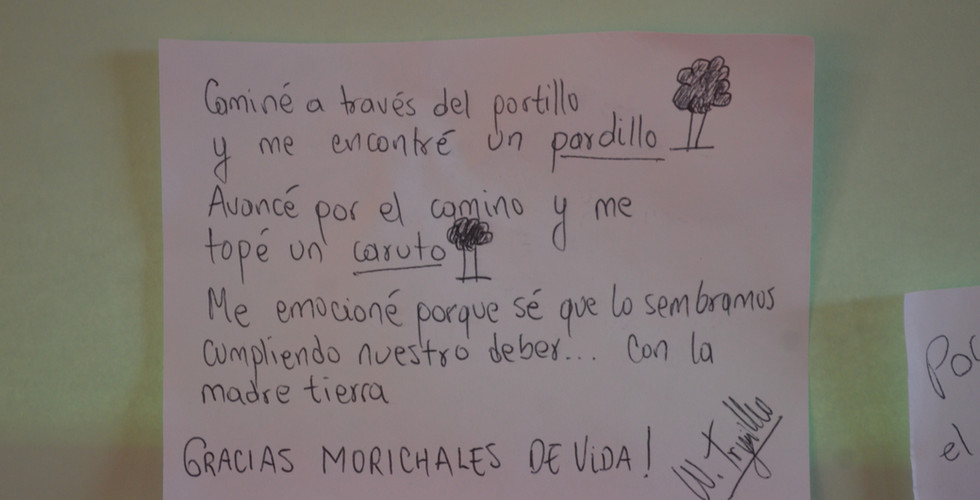 Caminé a través del portillo
y me encontré un pardillo
Avancé por el camino y me
topé un caruto
Me emocioné porque sé que lo sembramos
cumpliendo nuestro deber... con la
madre tierra
GRACIAS MORICHALES DE VIDA!
W. Trujillo
Por
el